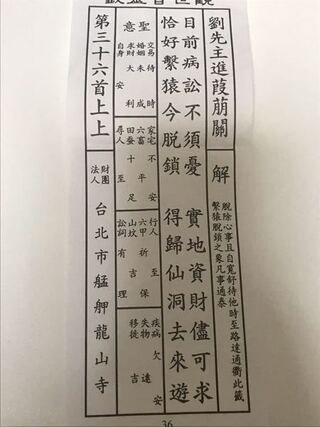 劉先主進葭萌關
解
脫除心事且自寬舒待他時至路達通衢此籤
繫猿脫鎖之象凡事通泰
目前病訟不須憂　實地資財儘可求
恰好繫猿今脫鎖　得歸仙洞去來遊
聖意
交易待時
婚姻未成
求財大利
自身安
家宅不安
六畜平
田蠶十足
尋人至
行人至
六甲祈保
山坟有吉
訟詞有理
疾病欠安
失物遠
移徙吉
第三十六首上上
財團
法人
台北市艋舺龍山寺
36